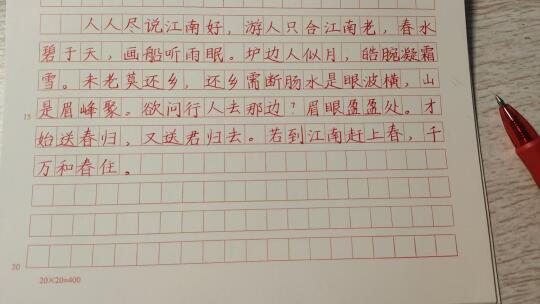 人人尽说江南好，游人只合江南老，春水
碧于天，画船听雨眠。垆边人似月，皓腕凝霜
雪。未老莫还乡，还乡需断肠水是眼波横，山
15
是眉峰聚。欲问行人去那边？眉眼盈盈处。才
始送春归，又送君归去。若到江南赶上春，千
万和春住。
20
20×20=400